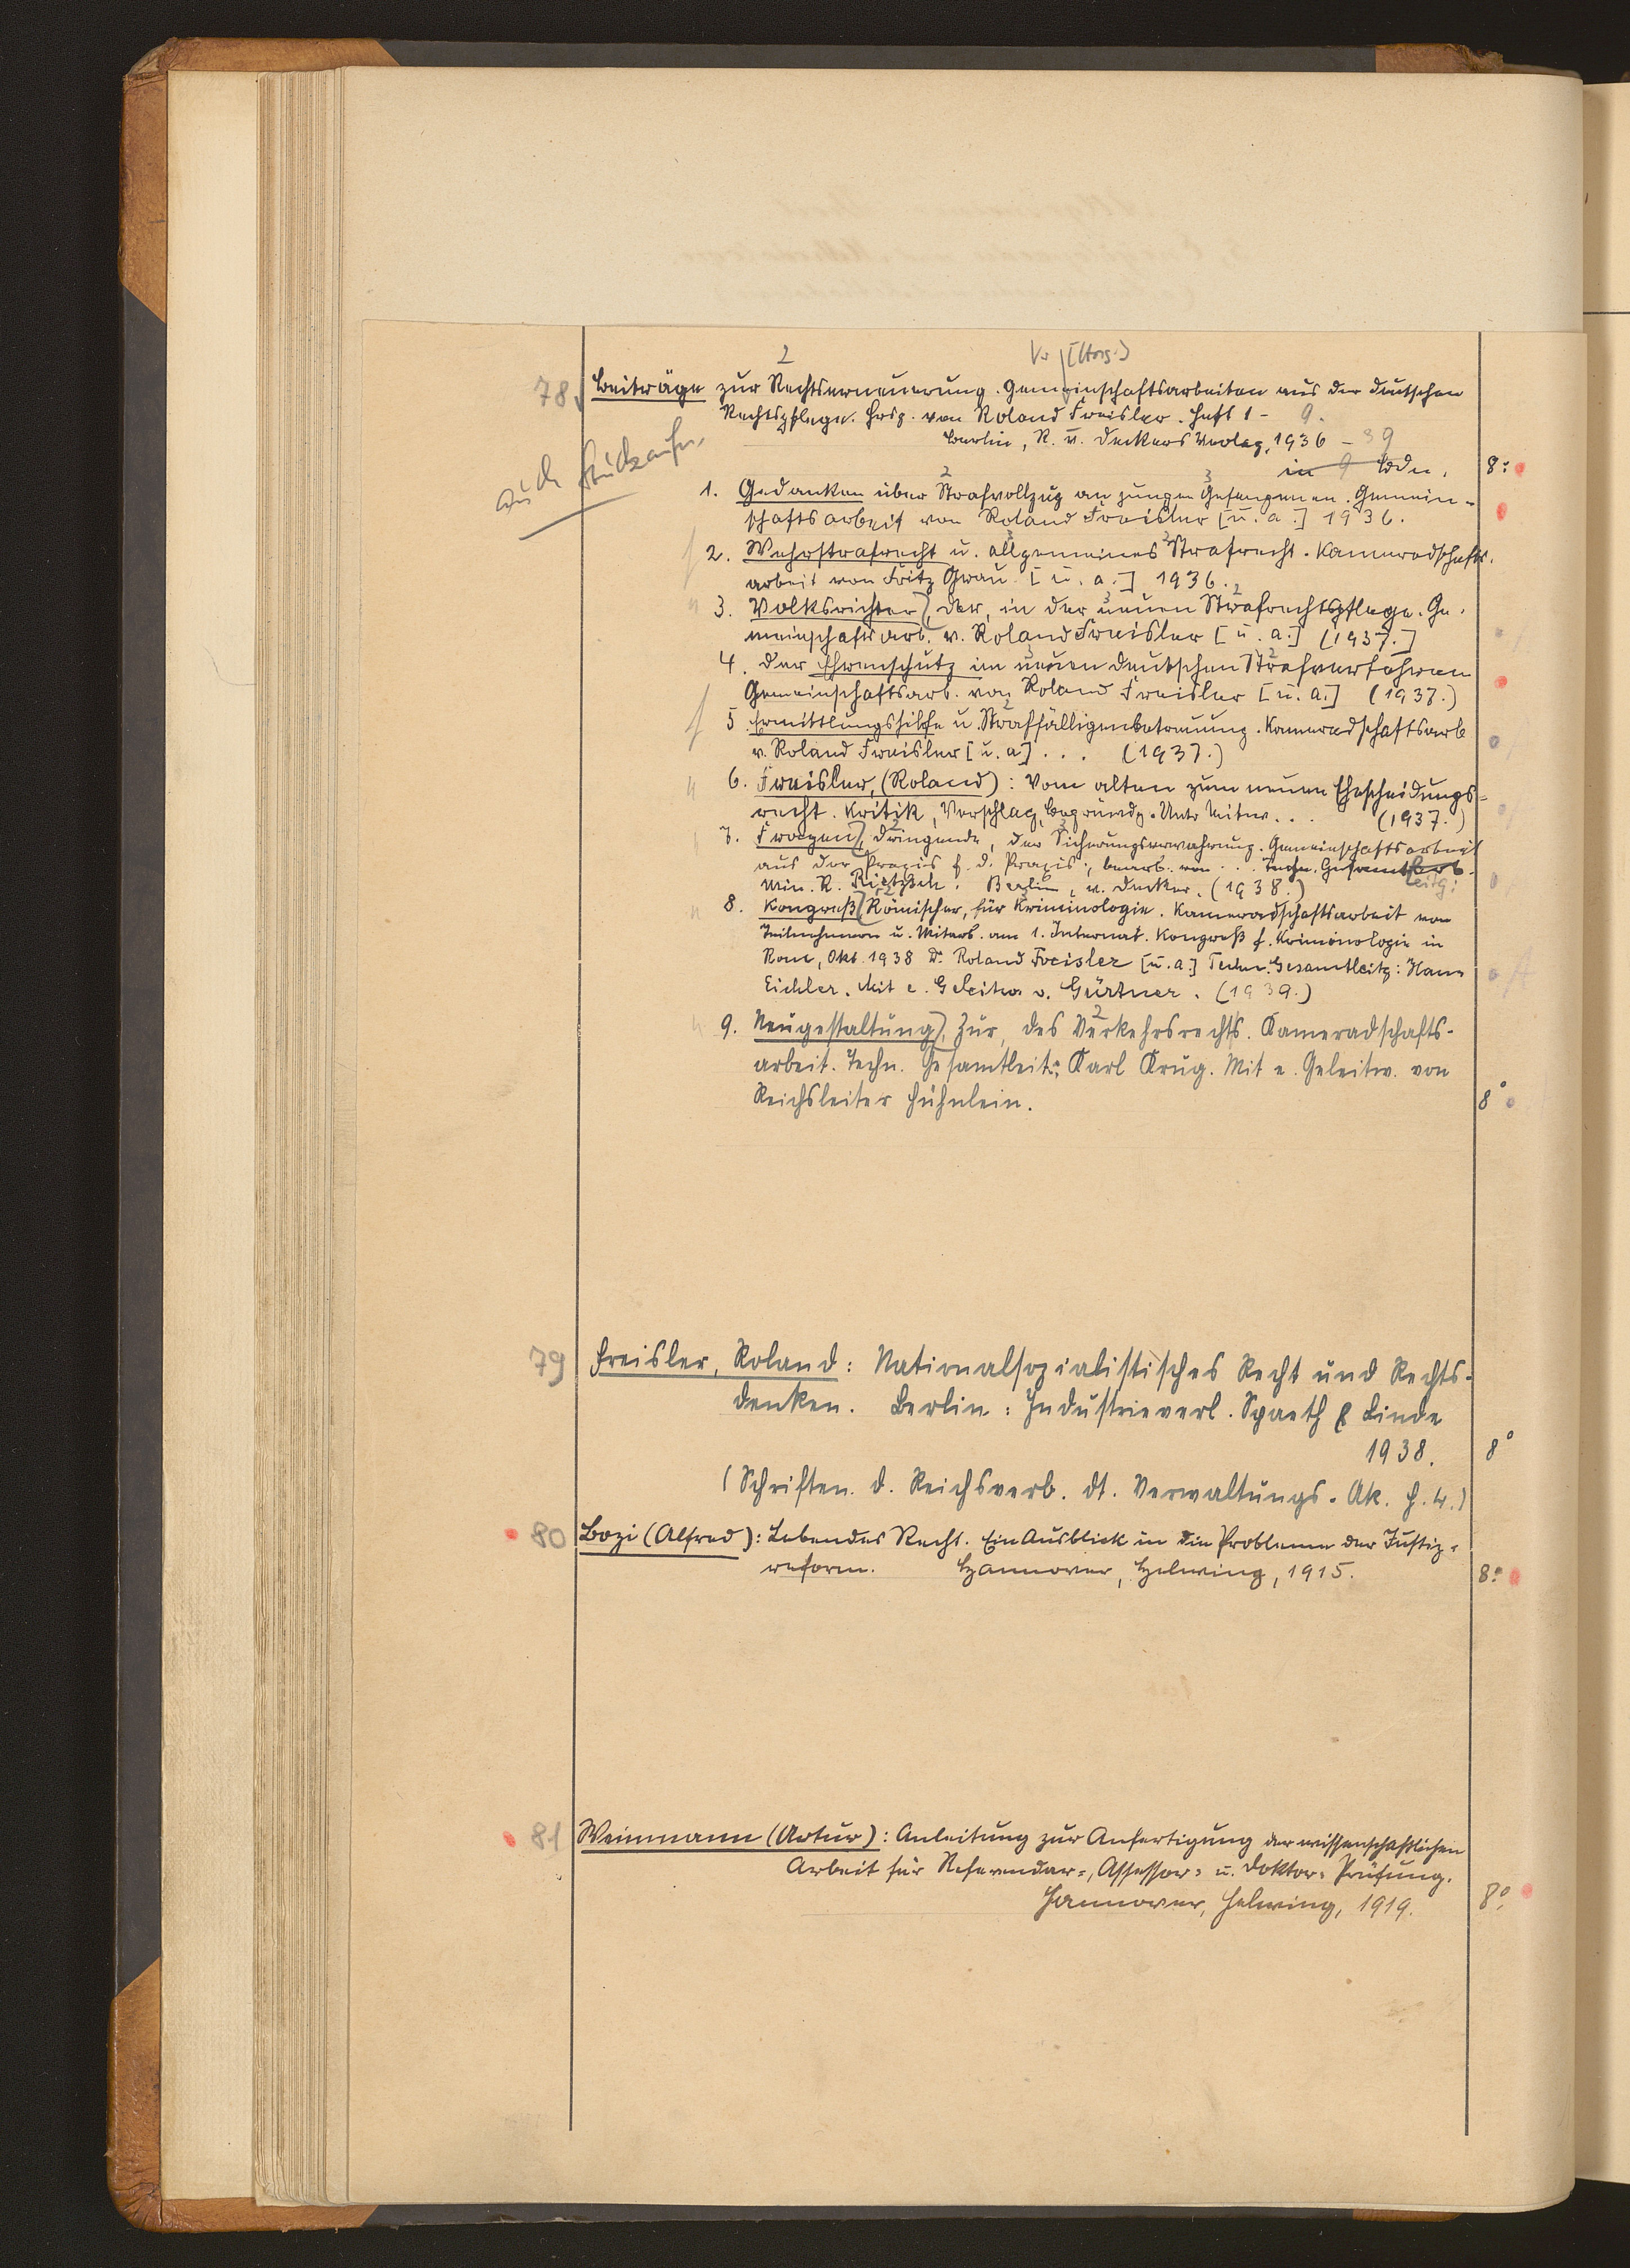 78. Beiträge zur Rechtserneuerung. Gemeinschaftsarbeiten aus der deutschen
Rechtspflege. Hrsg. von Roland Freisler. Heft 1 - 9.
Berlin, R. v. Deckers Verlag, 1936 - 39
in 9 Bdn. 8°
auch Stückaufn.
1. Gedanken über Strafvollzug an jungen Gefangenen. Gemein-
schaftsarbeit von Roland Freisler [u. a.] 1936.
2. Wehrstrafrecht u. allgemeines Strafrecht. Kameradschafts-
arbeit von Fritz Grau [u. a.] 1936.
3. Volksrichter), Der, in der neuen Strafrechtspflege. Ge-
meinschaftsarb. v. Roland Freisler [u. a.] (1937.]
4. Der Ehrenschutz im neuen deutschen Strafverfahren
Gemeinschaftsarb. von Roland Freisler [u. a.] (1937.)
5. Ermittlungshilfe u. Straffälligenbetreuung. Kameradschaftsarb
v. Roland Freisler [u. a] . . . (1937.)
6. Freisler, (Roland): Vom alten zum neuen Ehescheidungs-
recht. Kritik, Vorschlag, Begründg. Unter Mitw. . . (1937.)
7. Fragen), Dringende, der Sicherungsverwahrung. Gemeinschaftsarbeit
aus der Praxis f. d. Praxis, bearb. von . . . Techn. Gesamtarb.
leitg:
Min. R. Rietzsch. Berlin, v. Decker. (1938.)
8. Kongreß), Römischer, für Kriminologie. Kameradschaftsarbeit von
Teilnehmern u. Mitarb. am 1. Internat. Kongreß f. Kriminologie in
Rom, Okt. 1938 Dr. Roland Freisler [u. a.] Techn. Gesamtleitg: Hans
Eichler. Mit e. Geleitw. v. Gürtner. (1939.)
9. Neugestaltung), Zur, des Verkehrsrechts. Kameradschafts-
arbeit. Techn. Gesamtleit.: Karl Krug. Mit e. Geleitw. von
Reichsleiter Hühnlein. 8°
79 Freisler, Roland: Nationalsozialistisches Recht und Rechts-
denken. Berlin: Industrieverl. Spaeth & Linde
1938. 8°
(Schriften. d. Reichsverb. dt. Verwaltungs-Ak. H. 4.)
80 Bozi (Alfred): Lebendes Recht. Ein Ausblick in die Probleme der Justiz-
reform. Hannover, Helwing, 1915. 8°
81 Weinmann (Artur): Anleitung zur Anfertigung der wissenschaftlichen
Arbeit für Referendar-, Assessor- u. Doktor-Prüfung.
Hannover, Helwing, 1919. 8°